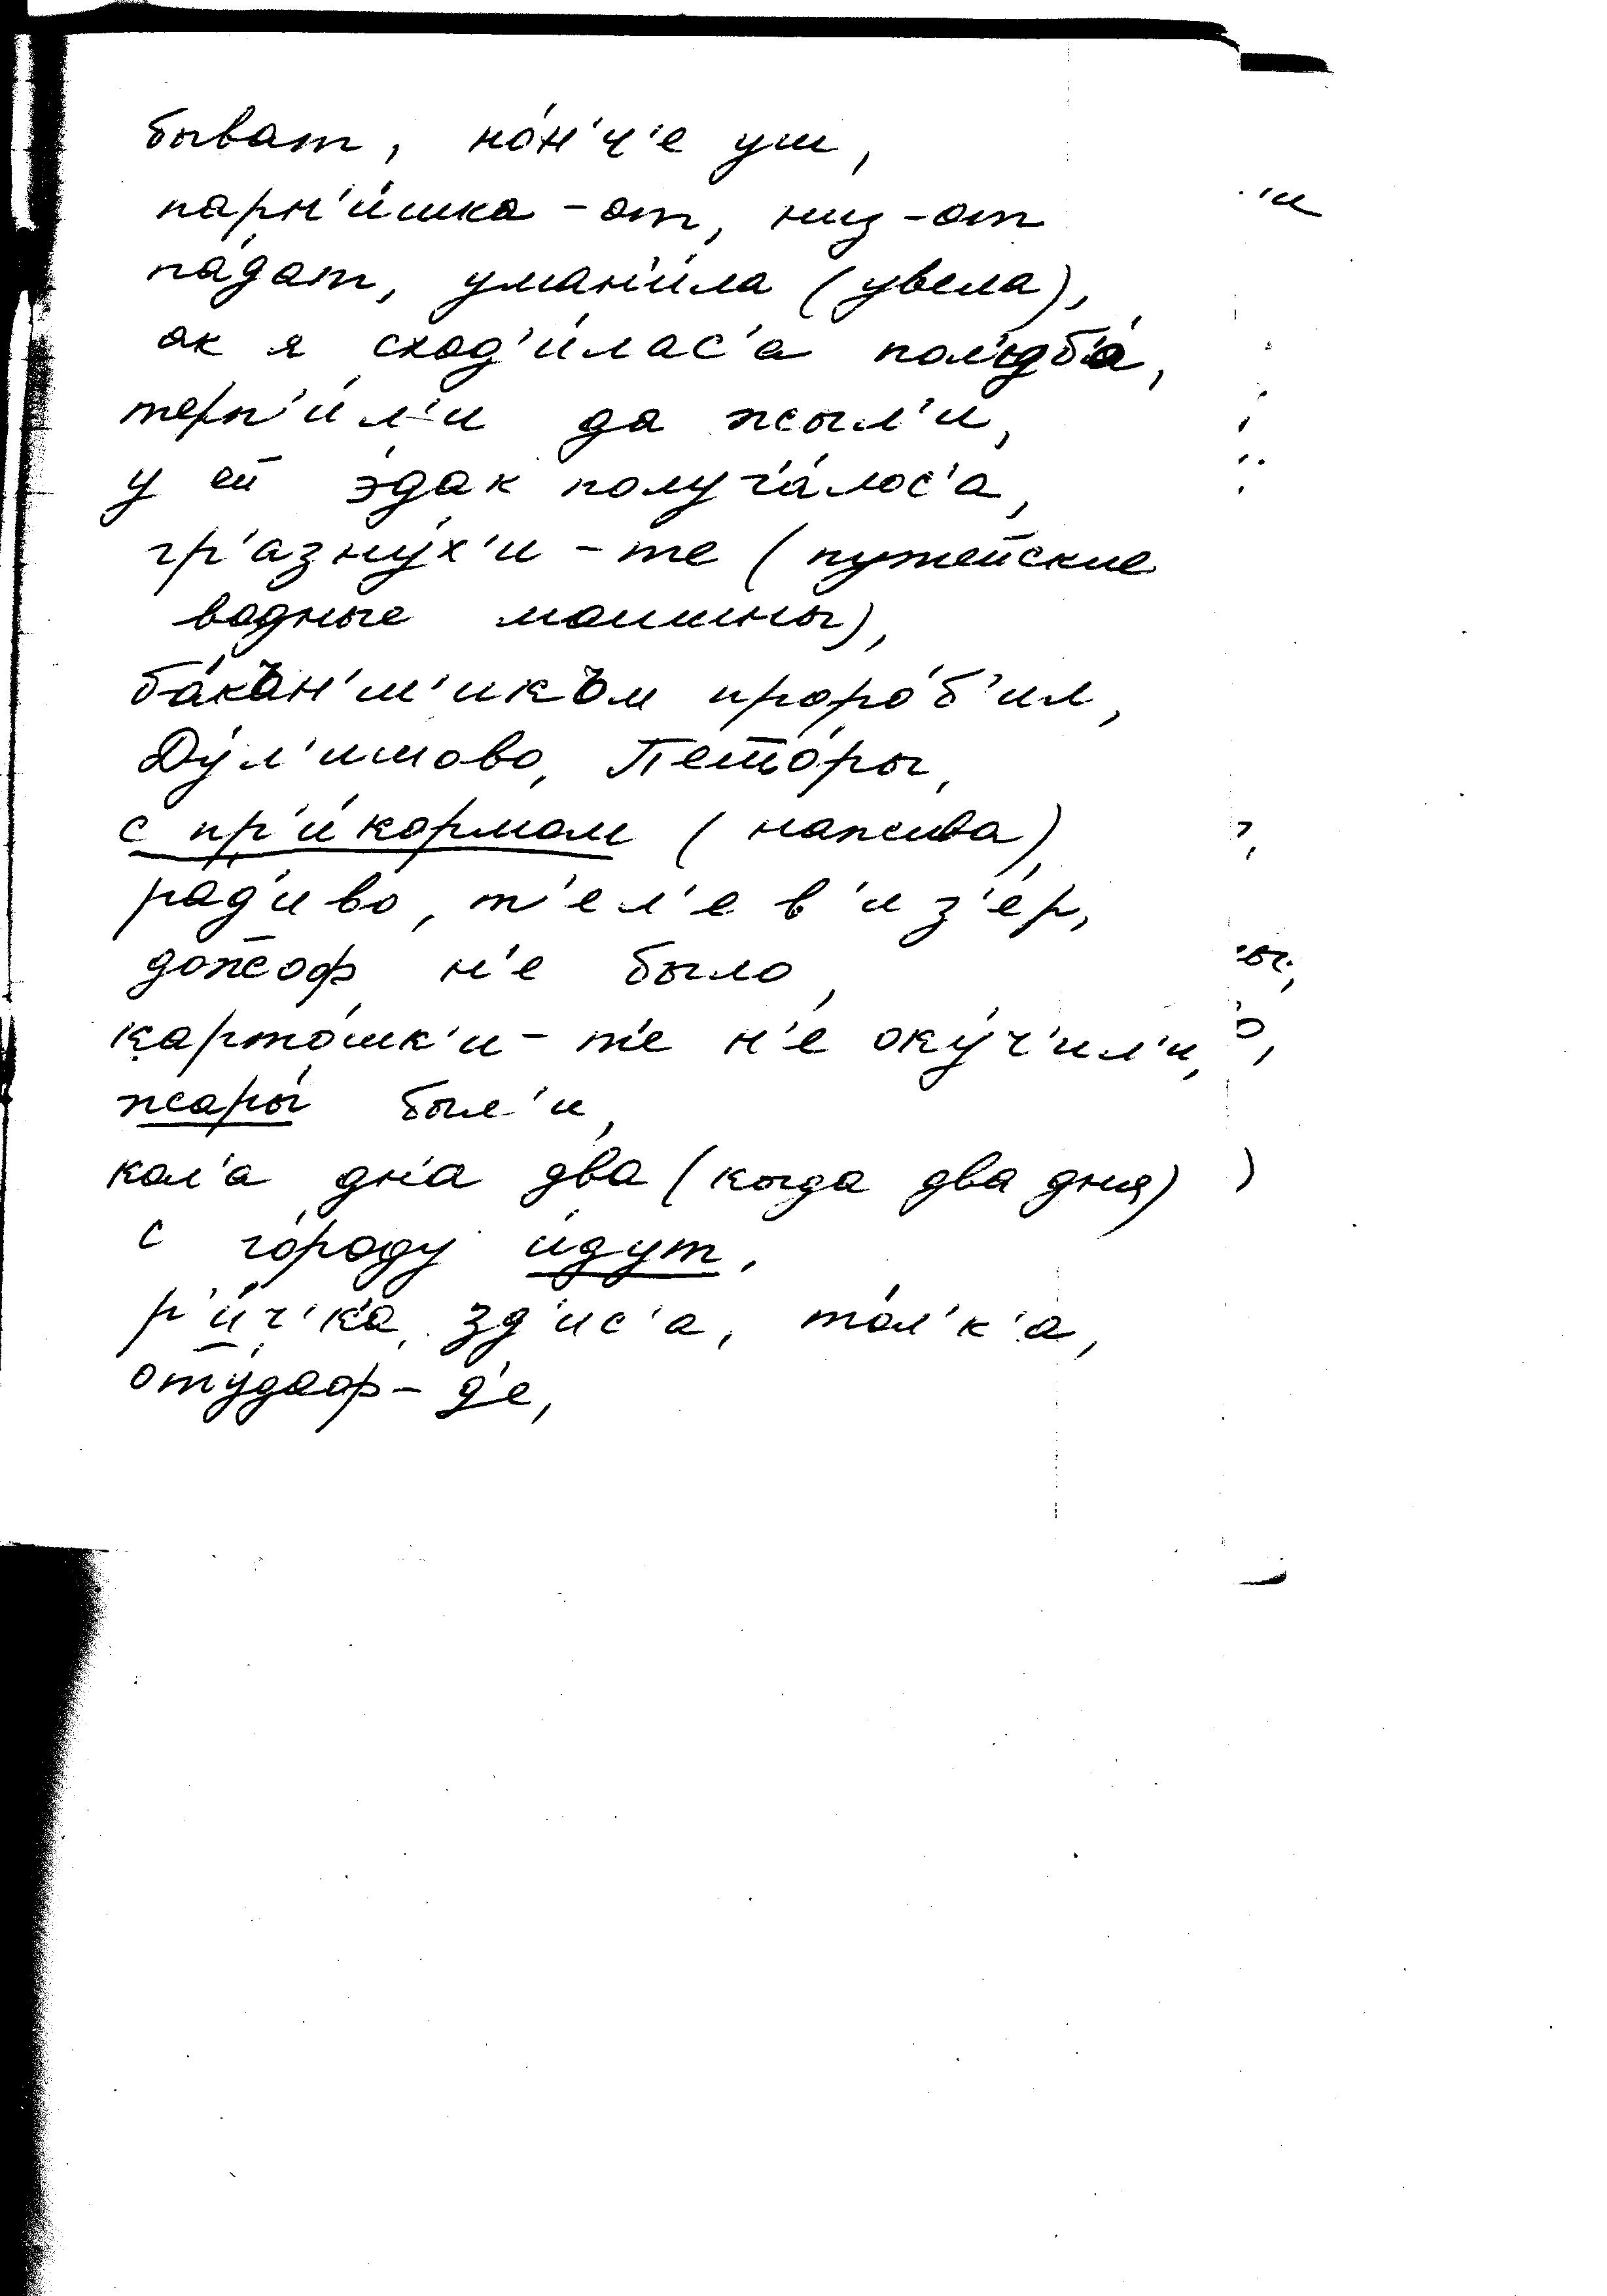 быват, но́н'ч'е уш,
парн'и́шка-от, низ-от
па́дат, уман'и́ла (увела),
ак я сход'и́лас'а пол'уб'а́,
терп'и́л'и да жыл'и,
у ей э́дак получ'а́лос'а,
гр'азну́х'и-те (путейские
водные машины),
ба́кън'ш'икъм проро́б'ил,
Ду́л'ишово, Пето́ры,
с пр'и́кормом (нажива),
ра́д'иво, т'ел'ев'из'ер,
дожжоф н'е было,
карто́шк'и-т'е н'е оку́ч'ил'и,
жары́ был'и,
кол'а дн'а два (когда два дня)
с го́роду и́дут,
р'и́ч'ка, зд'ис'а, то́л'к'а,
отту́даор-д'е,